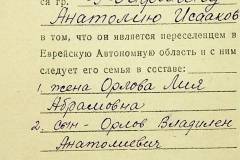 ся гр.
Анатолию Исааков
в том, что он является переселенцем в
Еврейскую Автономную область и с ним
следует его семья в составе:
1. жена Орлова Лия
Абрамовна
2. сын - Орлов Владилен
Анатолиевич